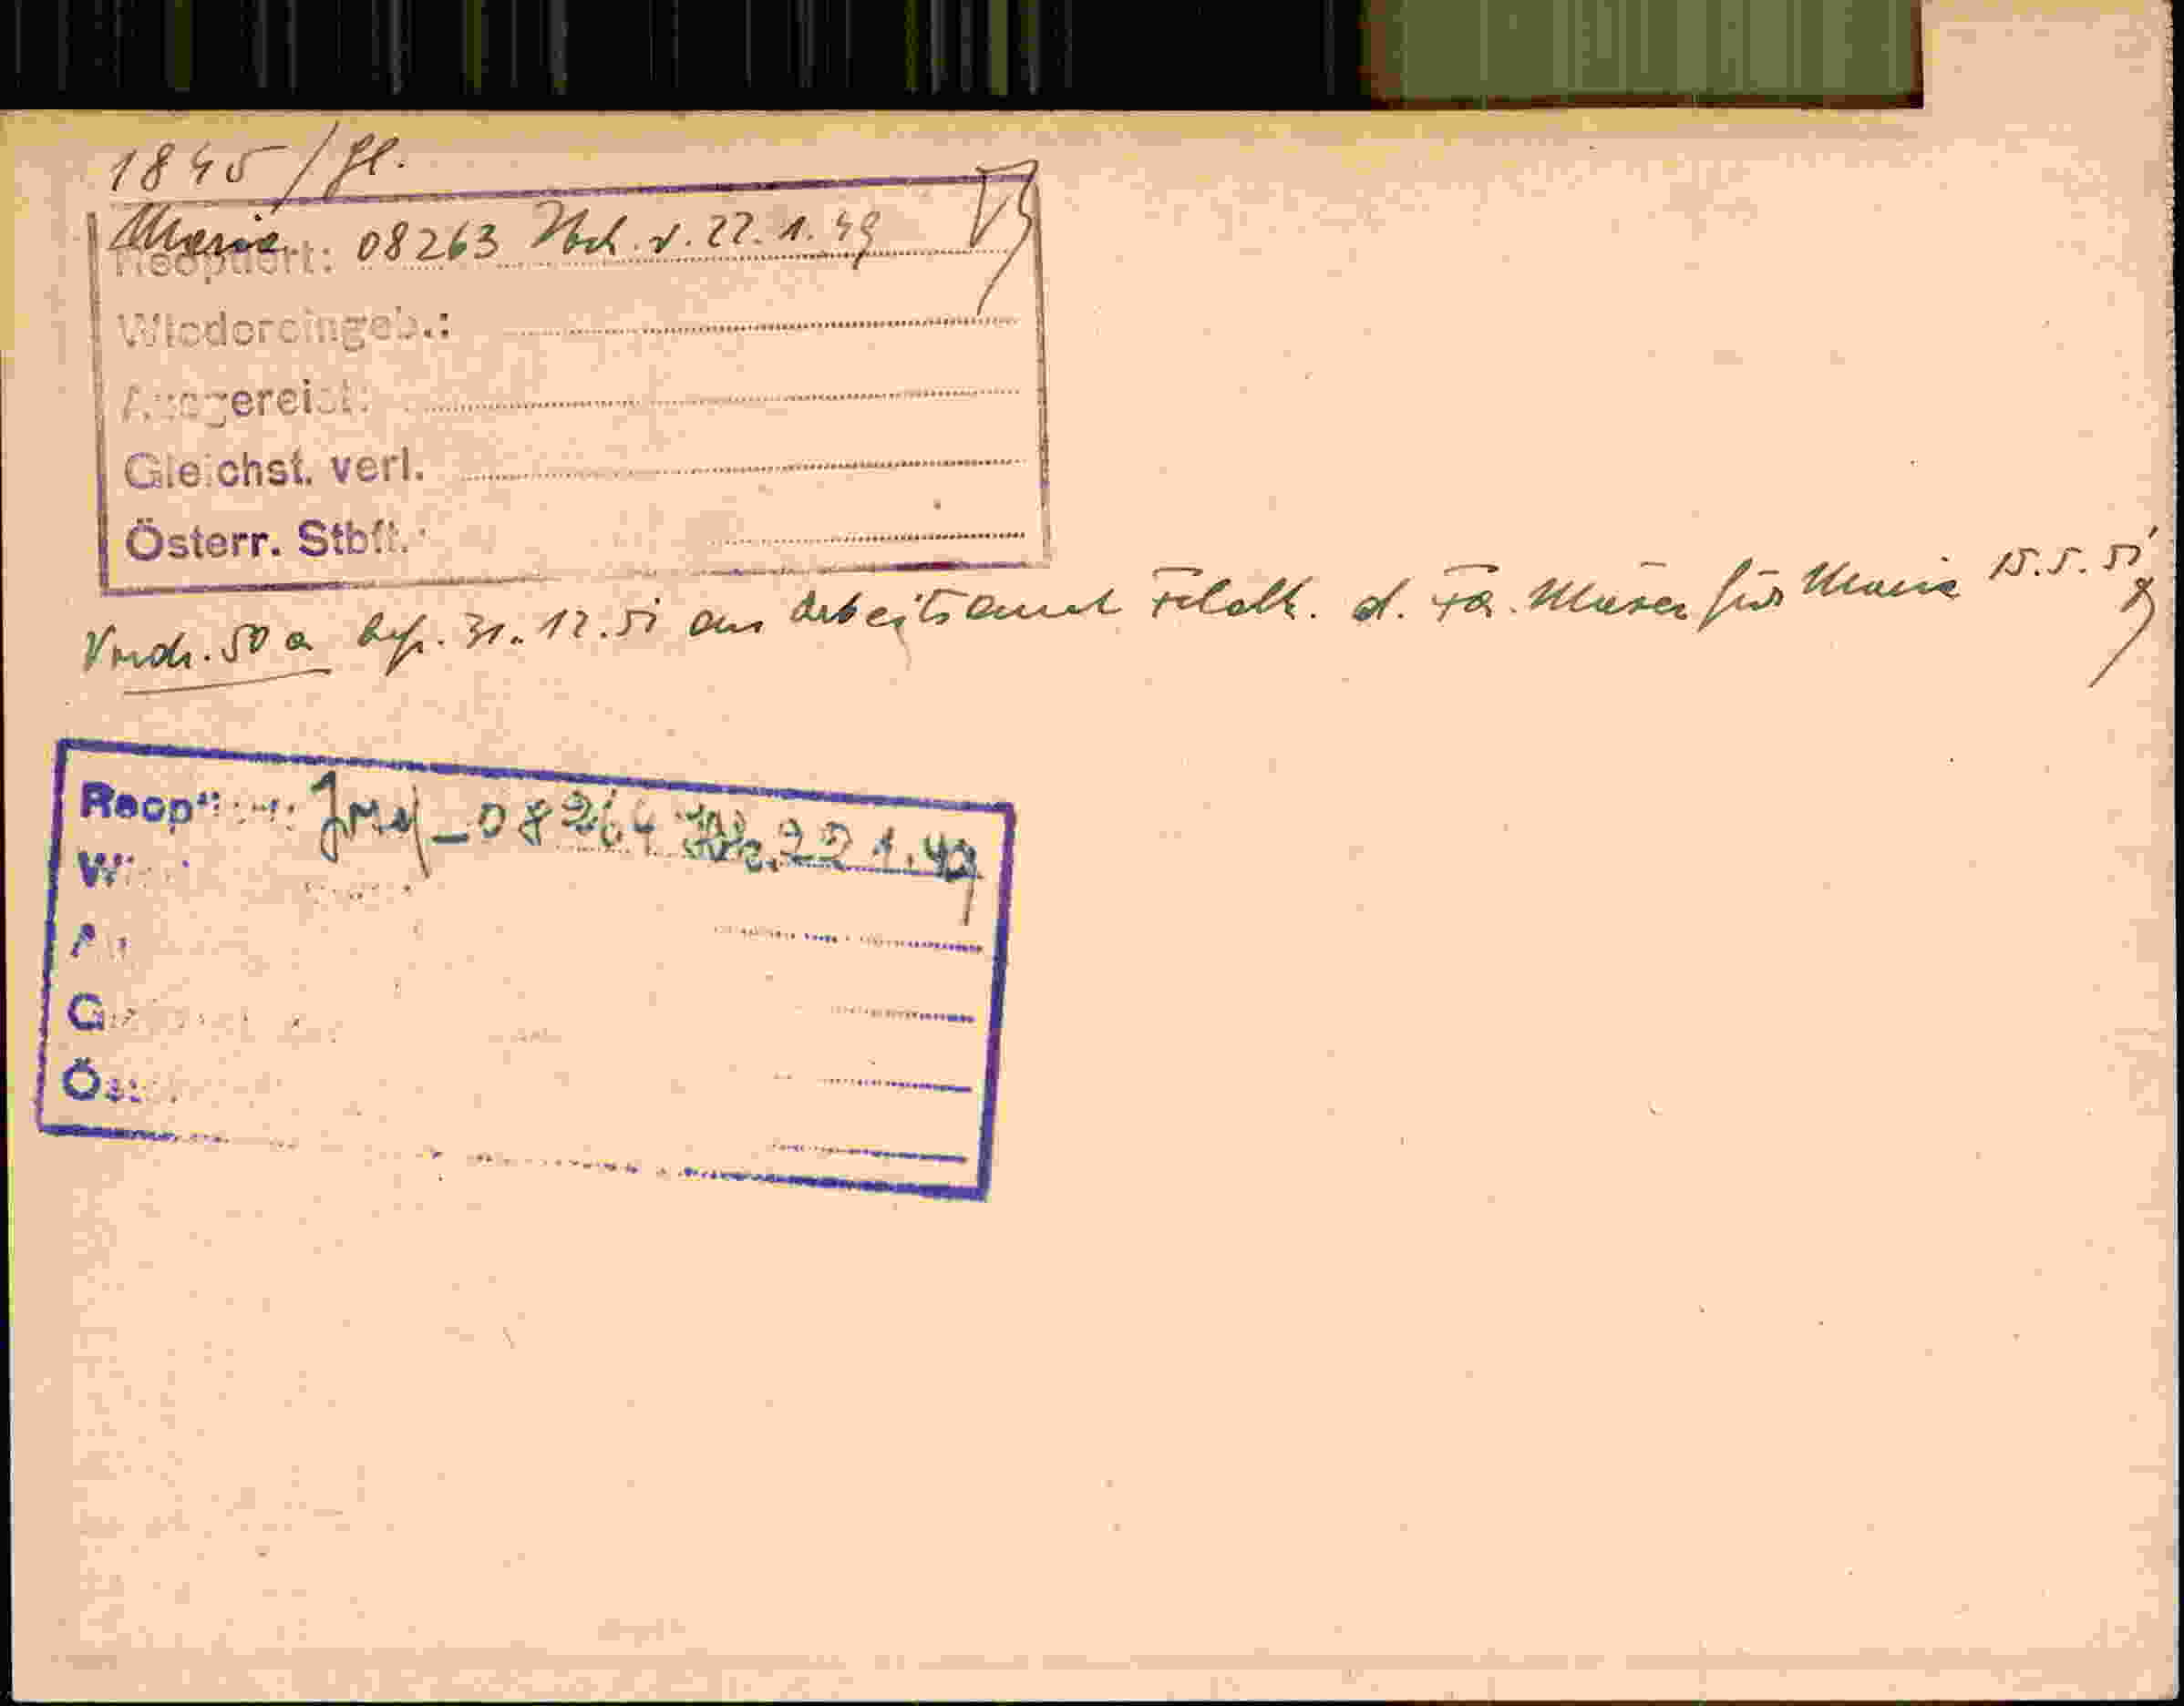 1845 / Gl.
Maria
Reoptiert: 08263 v. 22.1.49
Wiedereingeb.:
Ausgereist:
Gleichst. verl.
Österr. Stbft.:
Vordr. 50 a bef. 31.12.51 an Arbeitsamt Feldk. d. Fa. für Maria 15.5.51
Reoptiert: Josef - 08264 22 1.49
Wi
A
G
Öst